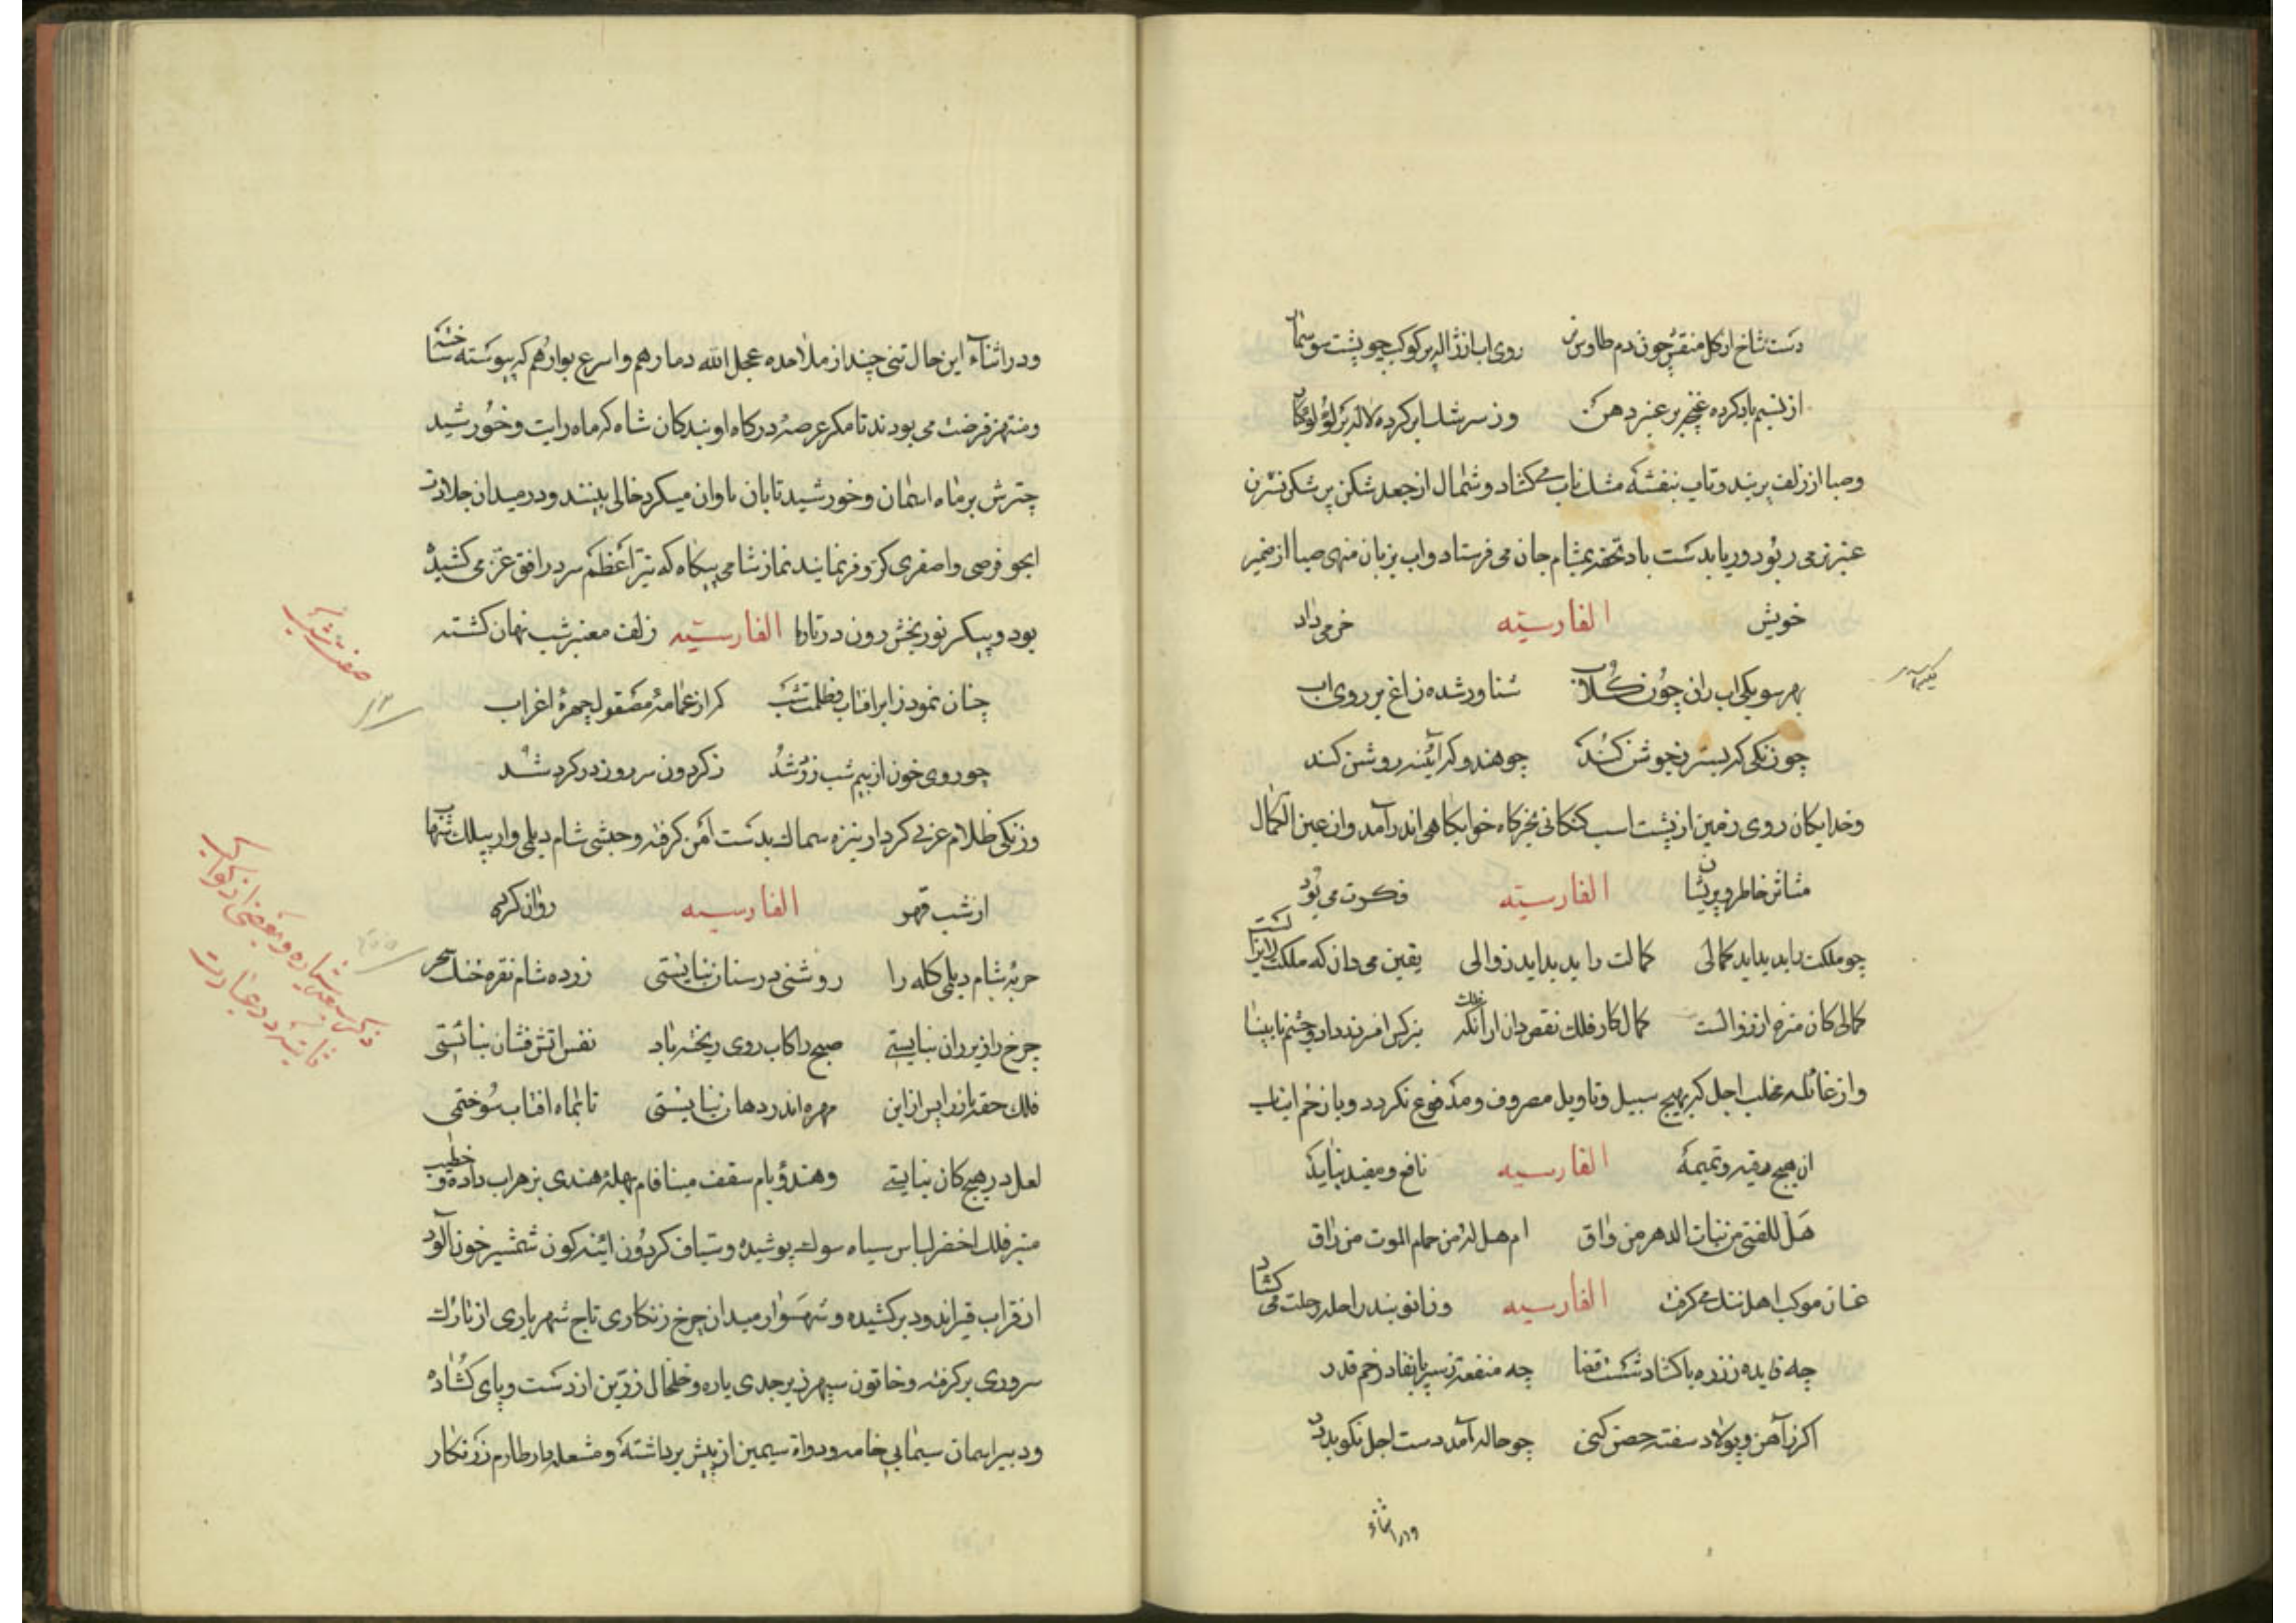 دست شاخ از کل منقش چون دم طاوس نر روی اب از ژاله پر کوکب چو پشت سوسمار
از نسیم باد کرده غنچه پر عنبر دهن وز سرشک ابر کرده لاله پر لؤلؤ کنار
وصبا از زلف پر بند وتاب بنفشه مشک ناب می کشاد وشمال از جعد شکن پر شکن نسترن
عنبر تر می ربود ورریا بدست باد تحفه بمشام جان می فرستاد واب بزبان منهی صبا از ضمیر
خویش الفارسیته خبر می داد
بهر سو یکی اب ران چون کلاب شناور شده زاغ بر روی اب
چو زنکی که بستر ز جوشن کند چو هندو که آئینه روشن کند
وخدایکان روی زمین از پشت اسب کنکانی بخرکاه خوابکاهی اندر آمد وان عین الکمال
متاثر خاطر وپریشان الفارسیته فکرت می بود
چو ملکت را بدید اید کمالی کمالت را بدید اید زوالی یقین می دان که ملکت
کمالی کان منزه از زوالست کمال کار فلک نقص دان از آنکه فلک نرکس افسر ندارد وچشم نابینا
واز غائله مخلب اجل که بهیچ سبیل وتاویل مصروف ومدفوع نکردد وبا زخم انیاب
ان هیچ رقیه وتمیمه الفارسیه نافع ومفید نیاید
هَل للفتی من بنات الدهر من واق ام هل له من حمام الموت من راق
عنان موکب اهل تنک می کرفت الفارسیه وزانو بند راحله رحلت می کشاد
چه فایده ز زره با کشاد شست قضا چه منفعت ز سپر با نفاد زخم قدر
اکر ز آهن وپولاد سفته حصن کنی چو حاله آمد دست اجل نکوبد در
ودر اثناء
ودر اثناء این حال تنی چند از ملاحده عجل الله دمارهم واسرع بوارهم که پیوسته
ومنتهز فرصت می بودند تا مکر عرصه درکاه او بندکان شاه که ماه رایت وخورشید
چترش بر ماه اسمان وخورشید تابان تاوان میکرد خالی بینند ودر میدان جلادت
ایجو فرصی واصفری کر وفر نمایند نماز شامی بیکاه که نیر اعظم سر در افق غرب می کشید
بود وپیکر نور بخش رون در تارها الفارسیته زلف معنبر شب نهان کشته
چنان نمود ز ابر افتاب وظلمت شب که از عمامه مصقول چهره اعراب
چو روی خون از بیم شب زرد شد ز کردون سر روز در کرد شد
وزنکی ظلام عربی کردار نیزه سماک بدست آهن کرفته وحبشی شام دیلمی وار بیلک شهاب
از شب قهر الفارسیه روان کرد
حربه شام دیلمی کله را روشنی در سنان نبایستی زرده شام نقره خنک سحر
چرخ را زیر ران نبایستی صبح را کاب روی ریخته باد نفس اتش فشان نبائستی
فلک حقه باز را پس از این مهره اندر دهان نبایستی تا بماه افتاب سوختمی
لعل در هیچ کان نبایستی وهندوی بام سقف مینا فام بهله هندی بزهراب داده وخطیب
منبر فلک اخضر لباس سیاه سوک پوشیده وسیاف کردون ائینه کون شمشیر خون آلود
از قراب قیر اندود برکشیده وشهسوار میدان چرخ زنکاری تاج شهریاری از تارک
سروری برکرفته وخاتون سپهر زبرجدی یاره وخلخال زرین از دست وپای کشاده
ودبیر اسمان سیمابی خامه ودواة سیمین از پیش برداشته ومشعله دار طارم زرنکار
صفت شب